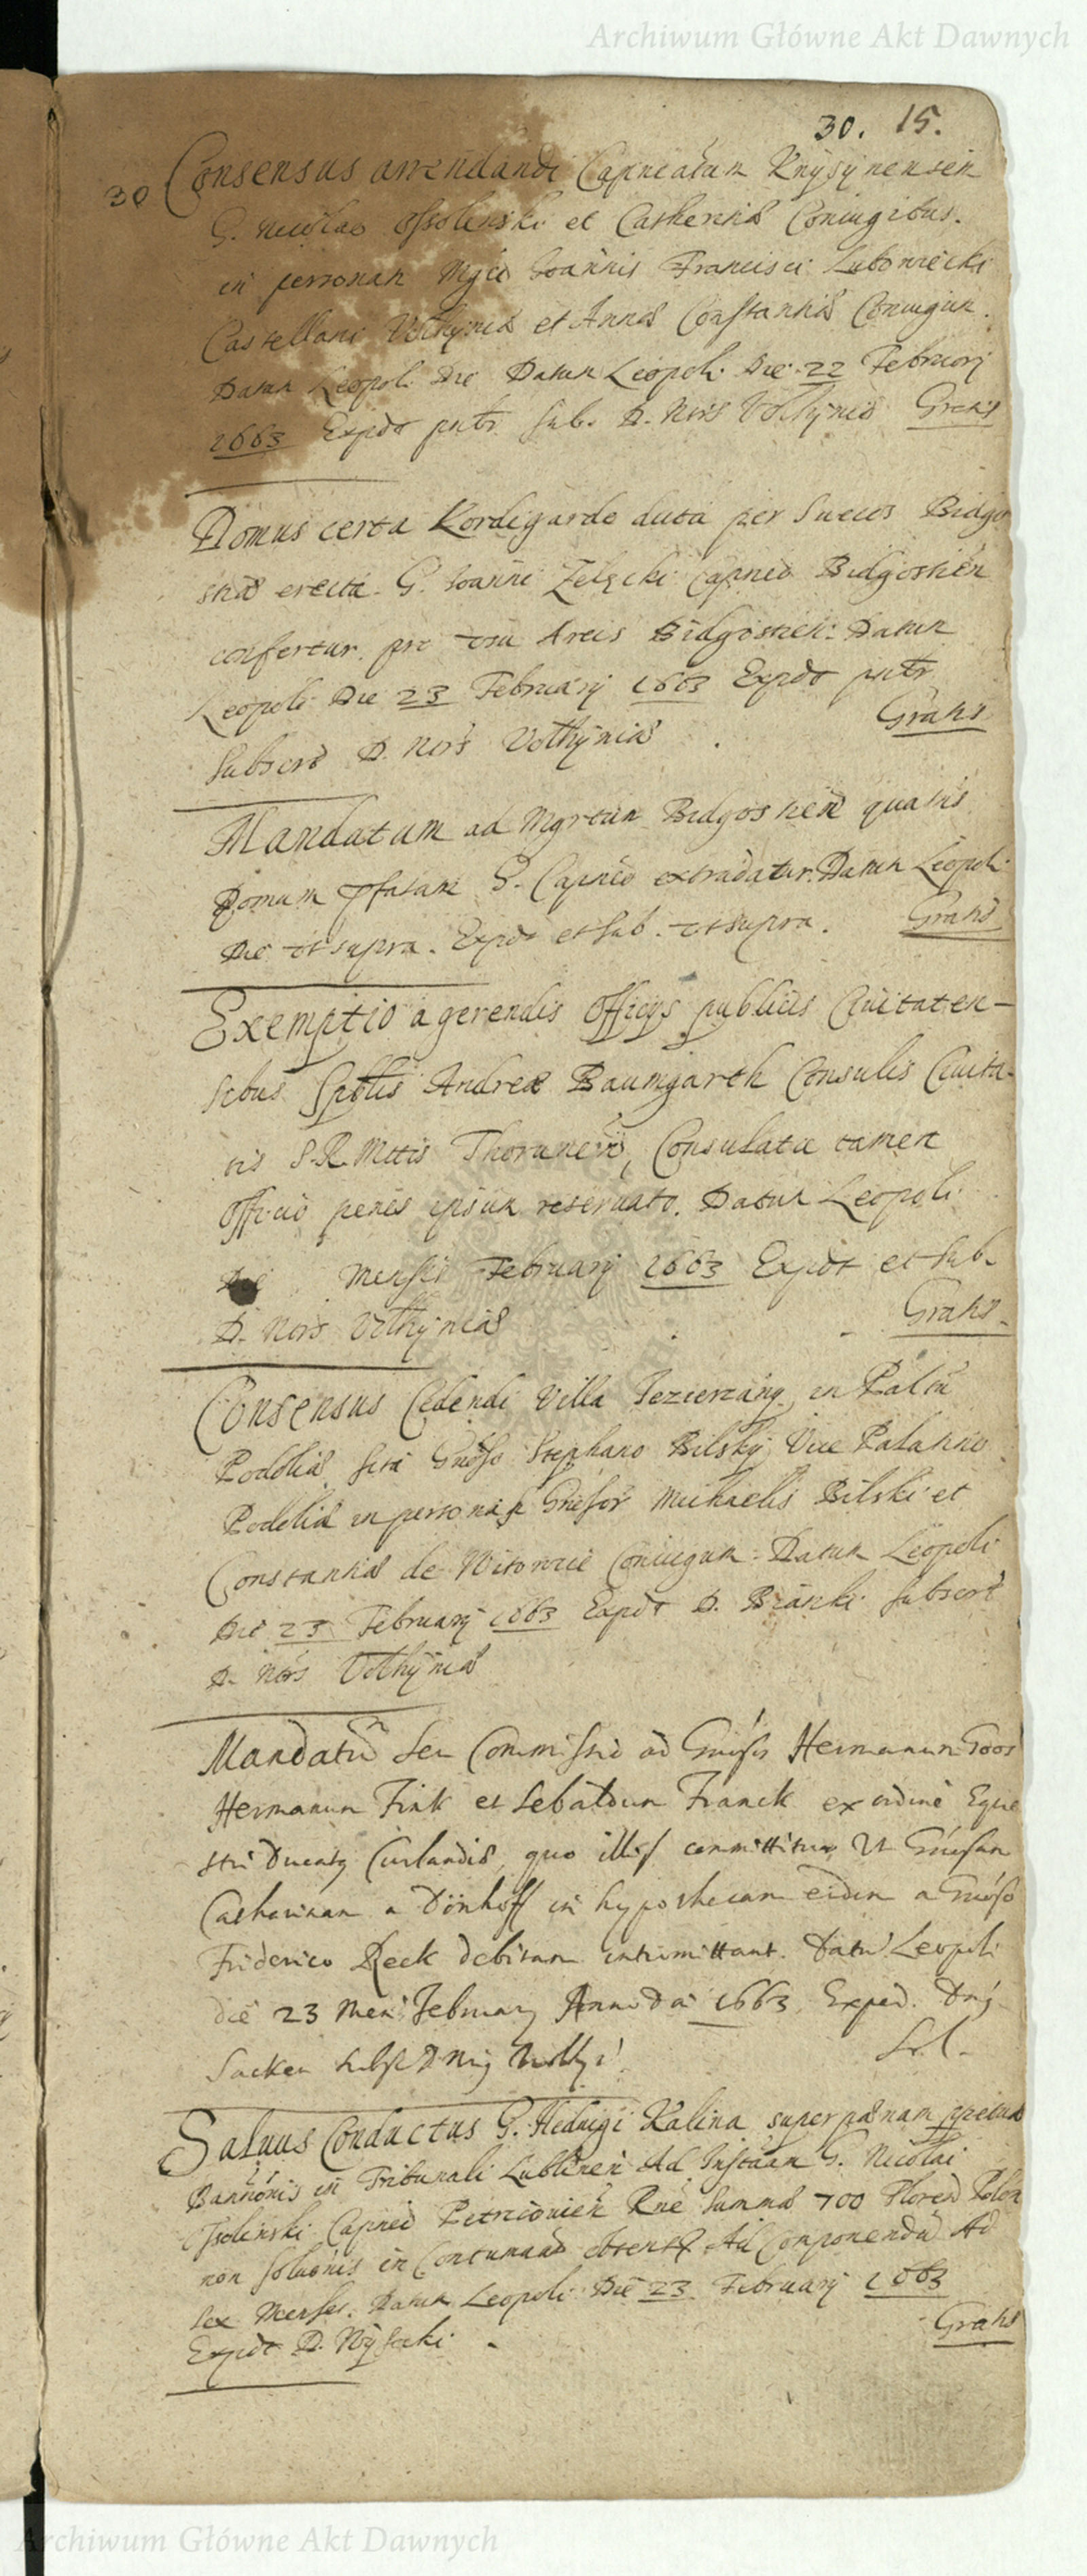 Archiwum Główne Akt Dawnych
30. 15.
30 Consensus arrendandi Capneatum Knysynensem
G. Nicolao Ossolinski et Catherinæ Coniugibus.
in personam Mgci Joannis Francisci Lubowiecki
Castellani Volhyniæ et Annæ Constantiæ Coniugum.
Datum Leopoli Die Datum Leopoli Die 22 Februarij
1663 Expdt pntr Sub. D. Nors Volhyniæ Gratis
Domus certa Kordigarde dicta per Suecos Bidgo
stiæ erecta G. Joanni Zelęcki Capneo Bidgostien
confertur pro usu Arcis Bidgostien: Datum
Leopoli Die 23 Februarij 1663 Expdt pntr
Subscrd D. Nors Volhyniæ . Gratis
Mandatum ad Mgrtum Bidgostien quatnus
Domum pfatam G. Capneo extradatur. Datum Leopoli
Die ut supra. Expdt et sub. ut supra. Gratis
Exemptio a gerendis Officijs publicis Ciuitaten-
sibus Sptlis Andreæ Baumgarth Consulis Ciuita-
tis S.R.Mttis Thorunen, Consulatu tamen
Officio penes ipsum reseruato. Datum Leopoli
Die Mensis Februarij 1663 Expdt et Sub.
D. Nors Volhyniæ Gratis.
Consensus Cedendi Villa Jezierzany in Paltu
Podoliæ sita Gnoso Stephano Bilsky Vice Palatino
Podoliæ in personas Gnesor Michaelis Bilski et
Constantiæ de Witowice Coniugum. Datum Leopoli
Die 23 Februarij 1663 Expdt D. Bianki Subscrt
D. Nors Volhyniæ
Mandatum seu Commissio ad Gnosos Hermanum Goos
Hermanum Fink et Sebaldum Franck ex ordine Eque
stri Ducatq Curlandiæ, quo illis committitur Ut Gnosam
Catharinam a Dönhoff in hypothecam eidem a Gnoso
Friderico Reck debitam intromittant. Datum Leopoli
die 23 Men: Februarij Anno Dni 1663 Exped. Dng
Sacken subst D Nrij Volhy:
Saluus Conductus G. Heduigi Kalina super pænam
Bannionis in Tribunali Lublinen Ad Instaam G. Nicolai
Ossolinski Capnei Petricouien Rne Summæ 700 Floren Polon
non solutionis in Contumaam obtent Ad Componendum Ad
sex Menses. Datum Leopoli Die 23 Februarij 1663
Expdt D. Wysocki. Gratis
Archiwum Główne Akt Dawnych